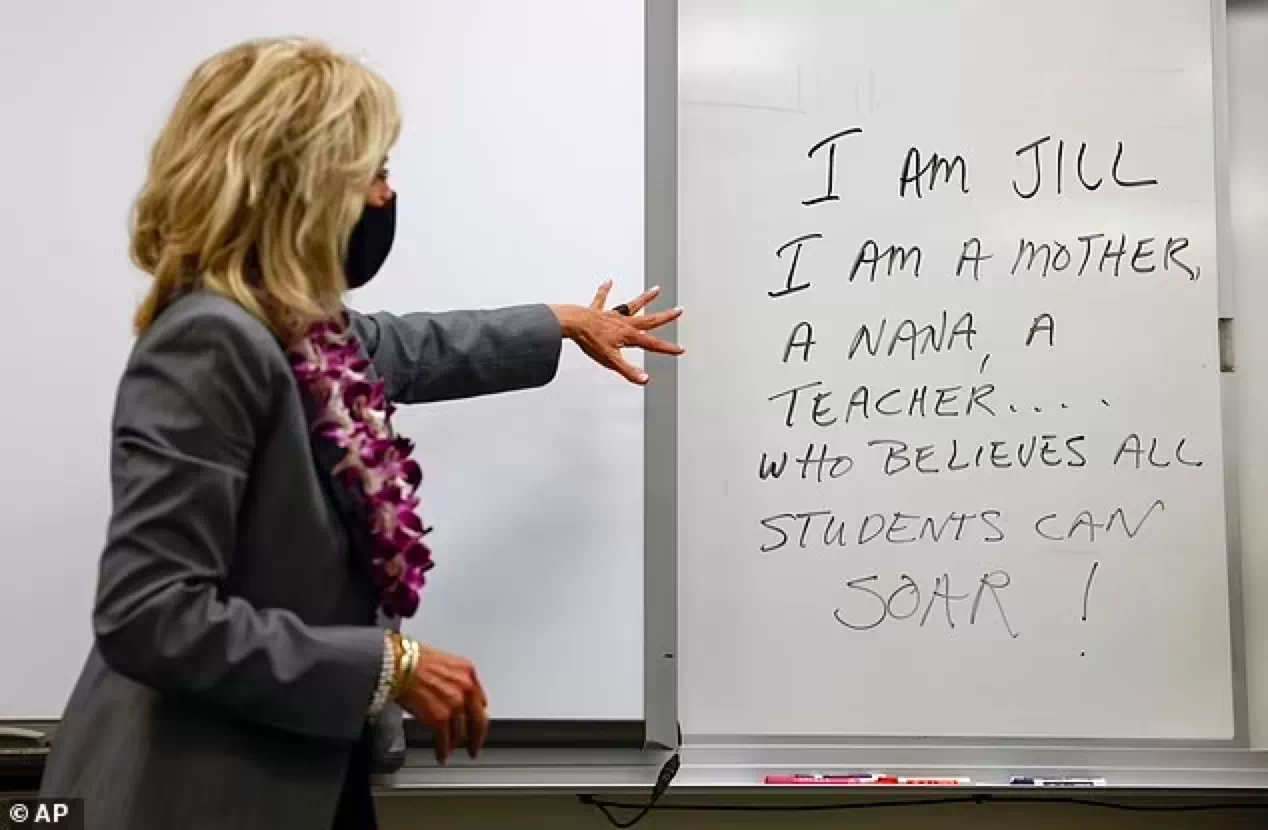 I AM JILL
I AM A MOTHER,
A NANA, A
TEACHER....
WHO BELIEVES ALL
STUDENTS CAN
SOAR !
© AP